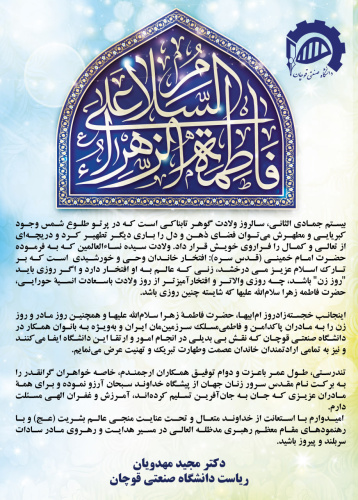 دانشگاه صنعتی قوچان
السلام علی
فاطمة الزهراء
بیستم جمادی الثانی، سالروز ولادت گوهر تابناکی است که در پرتو طلوع شمس وجود
کبریایی و مطهرش می‌توان فضای ذهن و دل را باری دیگر تطهیر کرد و دریچه‌ای
از تعالی و کمال را فراروی خویش قرار داد. ولادت سیده نساءالعالمین که به فرموده
حضرت امام خمینی (قدس سره): افتخار خاندان وحی و خورشیدی است که بر
تارک اسلام عزیز می درخشد، زنی که عالم به او افتخار دارد و اگر روزی باید
"روز زن" باشد، چه روزی والاتر و افتخارآمیزتر از روز ولادت باسعادت انسیة حورایی،
حضرت فاطمه زهرا سلام‌الله علیها که شایسته چنین روزی باشد.
اینجانب خجسته‌زادروز ام‌ابیها، حضرت فاطمـة زهـرا سلام‌الله علیهـا و همچنین روز مـادر و روز
زن را به مـادران پاکدامـن و فاطمی‌مسلک سـرزمین‌مان ایران و به‌ویـژه به بانوان همکار در
دانشگاه صنعتی قوچان که نقش بی بدیلی در انجام امور و ارتقا این دانشگاه ایفا می‌کنند
و نیز به تمامی ارادتمندان خاندان عصمت وطهارت تبریک و تهنیت عرض می‌نمایم.
تندرستی، طول عمر باعزت و دوام توفیق همکاران ارجمندم، خاصه خواهران گرانقدر را
به برکت نام مقدس سرور زنان جهان از پیشگاه خداوند سبحان آرزو نموده و برای همۀ
مادران عزیزی که جان به جان‌آفرین تسلیم کرده‌اند، آمرزش و غفران الهی مسئلت
دارم.
امیدوارم با استعانت از خداوند متعـال و تحت عنایت منجی عالم بشریت (عج) و با
رهنمودهای مقام معظم رهبری مدظله العالی در مسیر هدایت و رهروی مادر سادات
سربلند و پیروز باشید.
دکتر مجید مهدویان
ریاست دانشگاه صنعتی قوچان